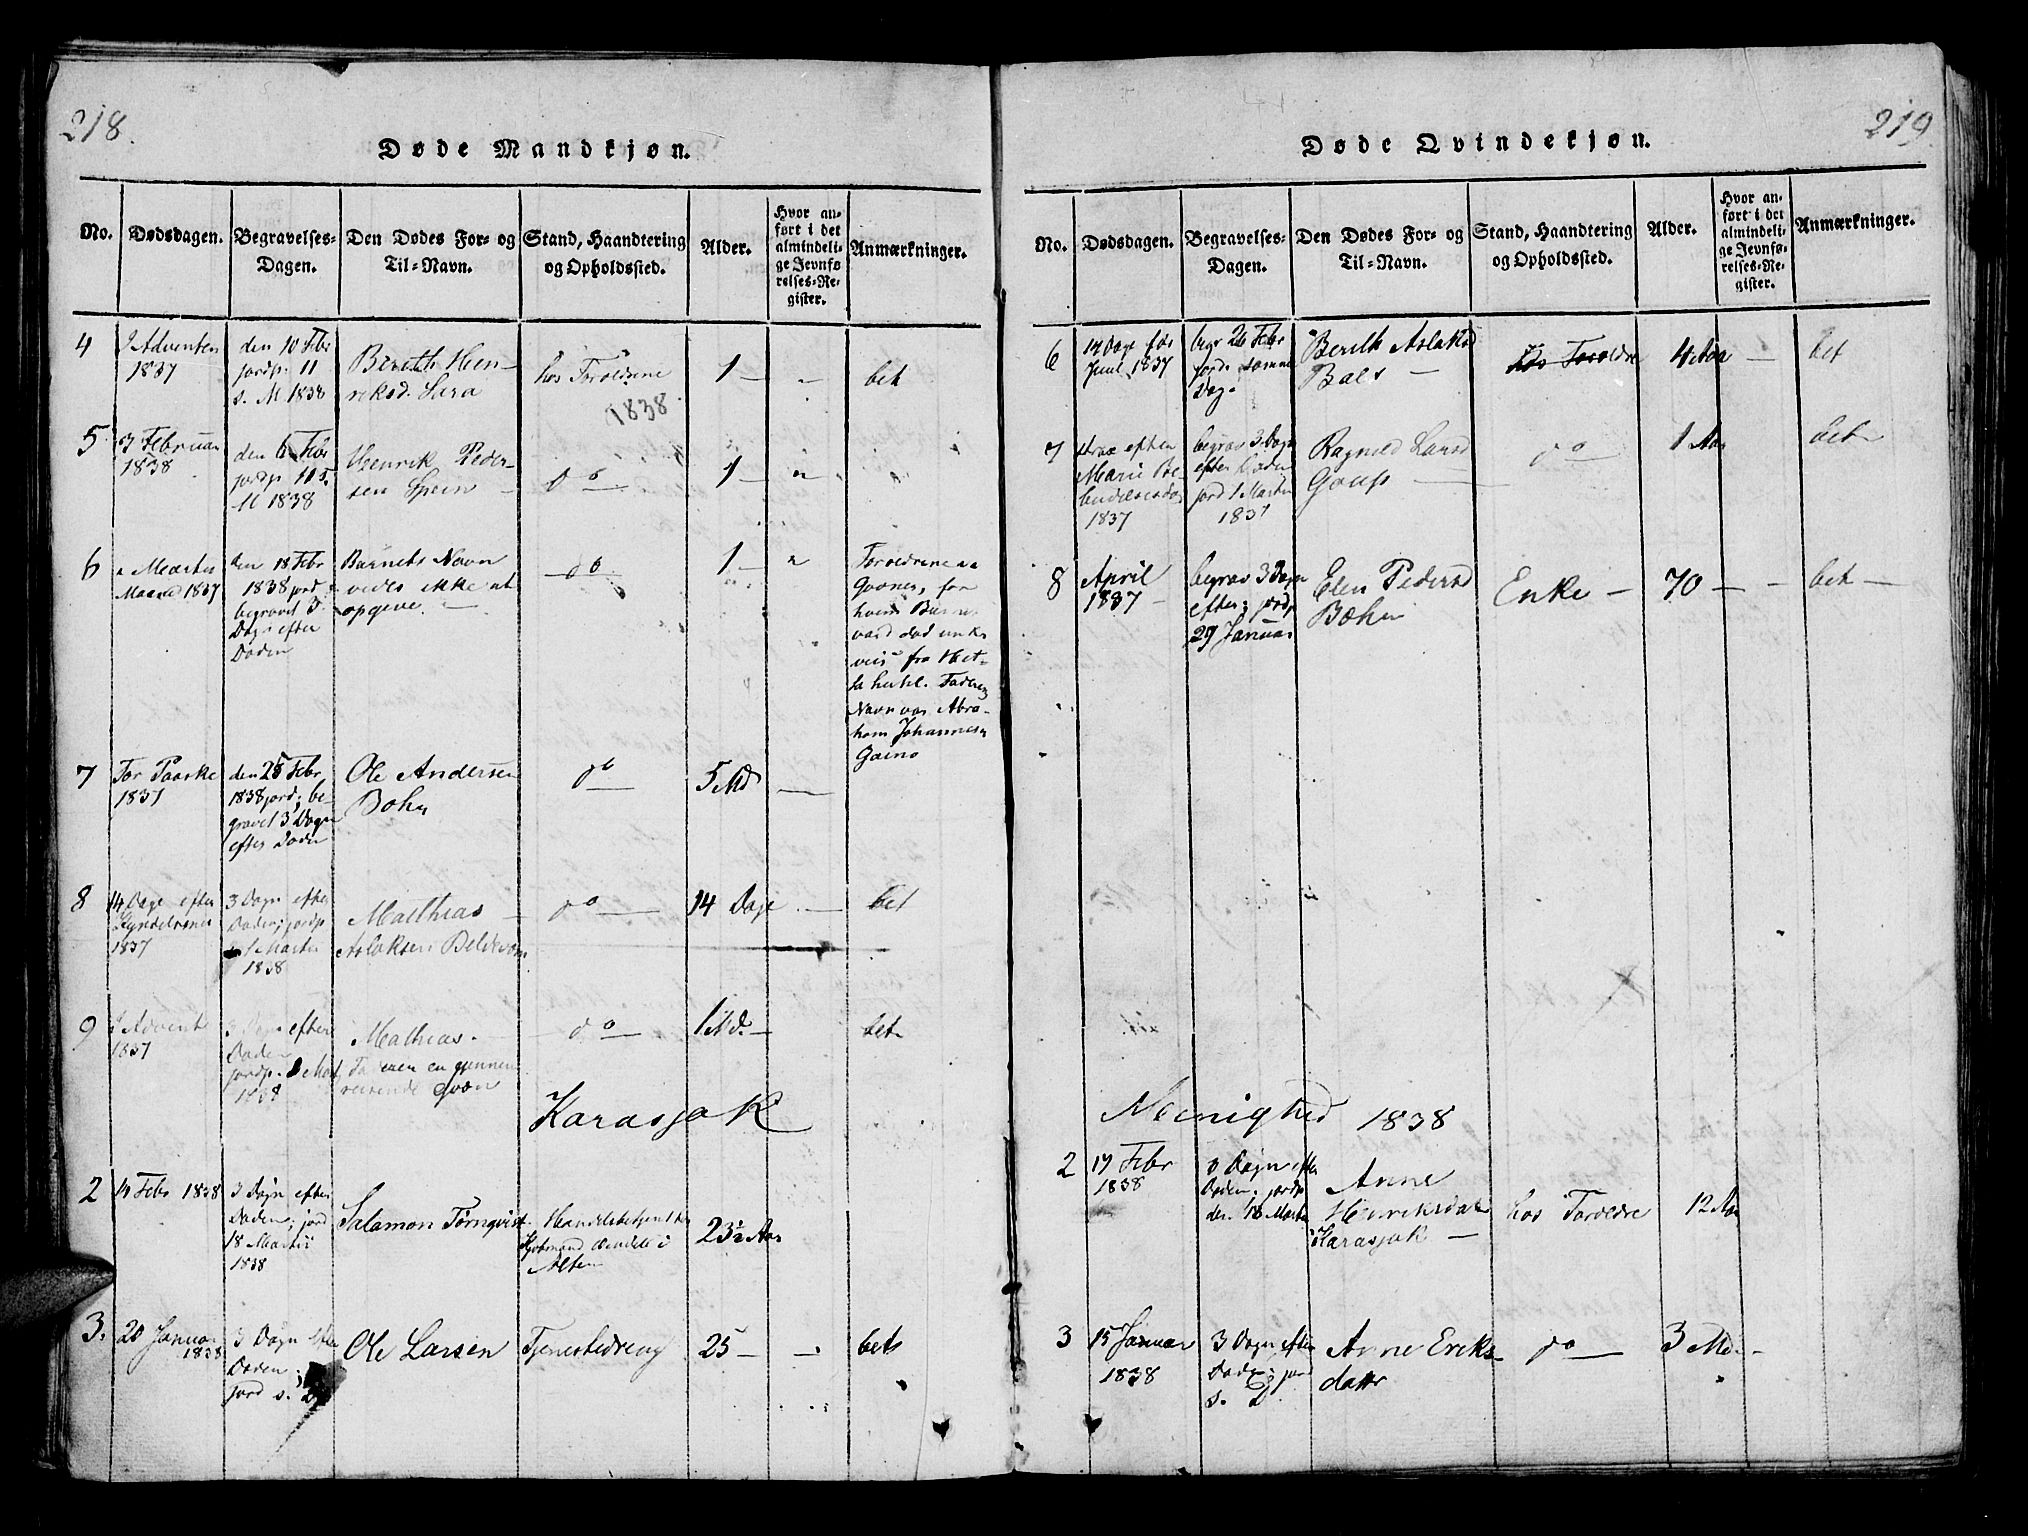 218.
Døde Mandkjøn.
No. Dødsdagen. Begravelses-Dagen. Den Dødes For- og Til-Navn. Stand, Haandtering og Opholdssted. Alder. Hvor anført i det almindelige Jevnførelses-Register. Anmærkninger.
4 I Adventen 1837
den 10 Febr jordp. 11 s. M 1838
Berith Henriksd. Sara
hos Foroldrene 1 — bet
1838.
5 Februar 1838
den 6 Febr jordp 11 s. M 1838
Henrik Pedersen Spein
do 1 — "
6 Martes Maaned 1837
den 18 Febr 1838 jord; begravet 3 Dagn efter Doden
Barnets Navn vides ikke at opgive. —
do 1 — "
Foroldrene
Qvæner, for
hvem Barnet
var død
veis fra Het-
ta kirke. Faderens
Navn var Abra-
ham Johannesen
Gaino
7 For Paaske 1837
den 25 Febr 1838 jord; begravet 3 Dagn efter Doden
Ole Andersen Bohn
do 5 Md —
8 14 Dage efter Kyndelsmes 1837
3 Dagn efter Doden; jordp Martii 1838
Mathias Aslaksen
do 14 Dage — bet
9 I Advent 1837
3 Dagn efter Doden jordp. Mart 1838
Mathias. Faderen en gjennemreisende Qvæn
do 1 Md. — bet
Karasjok
2 14 Febr 1838
3 Dagn efter Doden; jord 18 Martii 1838
Salamon Törnqvist
Handelsbetjent hos Kjobmand i Alten
23½ Aar
3. 20 Januar 1838
3 Dagn efter Doden; jord s. D
Ole Larsen
Tjenestedreng 25 — bet
219
Døde Qvindekjøn.
No. Dødsdagen. Begravelses-Dagen. Den Dødes For- og Til-Navn. Stand, Haandtering og Opholdssted. Alder. Hvor anført i det almindelige Jevnførelses-Register. Anmærkninger.
6 14 Dage for Juul 1837
begr 26 Febr jord. samme Dag
Berith Aslaksd Bals —
hos Foroldre 4 Aar — bet
7 strax efter Marie Bebudelsesdag 1837
begrav 3 Dagn efter Doden jord 1 Martii 1837
Ragnild Larsd Gaup —
do 1 Aar bet
8 April 1837
begrav 3 Dagn efter; jordp 29 Januar
Elen Pedersd Bæhr
Enke — 70 — bet —
Meenighed 1838
2 19 Febr 1838
3 Dagn efter Doden; jordp den 18 Martii
Anne Henriksdatter Karasjok —
hos Foroldre 12 Aar
3 15 Januar 1838
3 Dagn efter Doden; jord s. D.
Anne Eriksdattr
do 3 Md. —